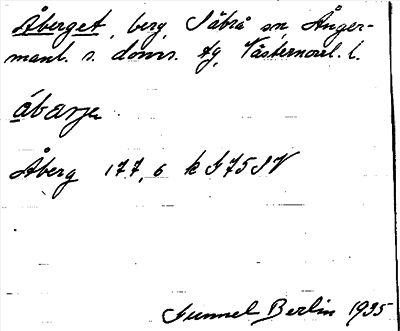 Åberget, berg, Säbrå sn, Ånger-
manl. s. doms. fg, Västernorrl. l.
Åberg 177,6 k F75SV
Gunnel Berlin 1935